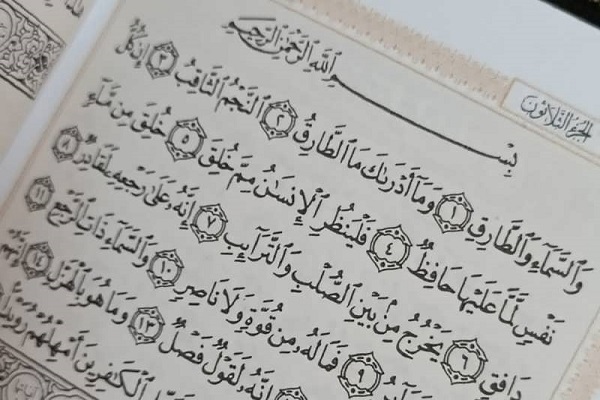 الجزء الثلاثون
بِسْمِ ٱللَّهِ ٱلرَّحْمَٰنِ ٱلرَّحِيمِ
وَٱلسَّمَآءِ وَٱلطَّارِقِ ١ وَمَآ أَدْرَىٰكَ مَا ٱلطَّارِقُ ٢ ٱلنَّجْمُ ٱلثَّاقِبُ ٣ إِن كُلُّ
نَفْسٍ لَّمَّا عَلَيْهَا حَافِظٌ ٤ فَلْيَنظُرِ ٱلْإِنسَٰنُ مِمَّ خُلِقَ ٥ خُلِقَ مِن مَّآءٍ
دَافِقٍ ٦ يَخْرُجُ مِنۢ بَيْنِ ٱلصُّلْبِ وَٱلتَّرَآئِبِ ٧ إِنَّهُۥ عَلَىٰ رَجْعِهِۦ لَقَادِرٌ ٨
٩ فَمَا لَهُۥ مِن قُوَّةٍ وَلَا نَاصِرٍ ١٠ وَٱلسَّمَآءِ ذَاتِ ٱلرَّجْعِ ١١
إِنَّهُۥ لَقَوْلٌ فَصْلٌ ١٣ وَمَا هُوَ بِٱلْهَزْلِ ١٤ إِنَّهُمْ
ٱلْكَٰفِرِينَ أَمْهِلْهُمْ رُوَيْدًۢا